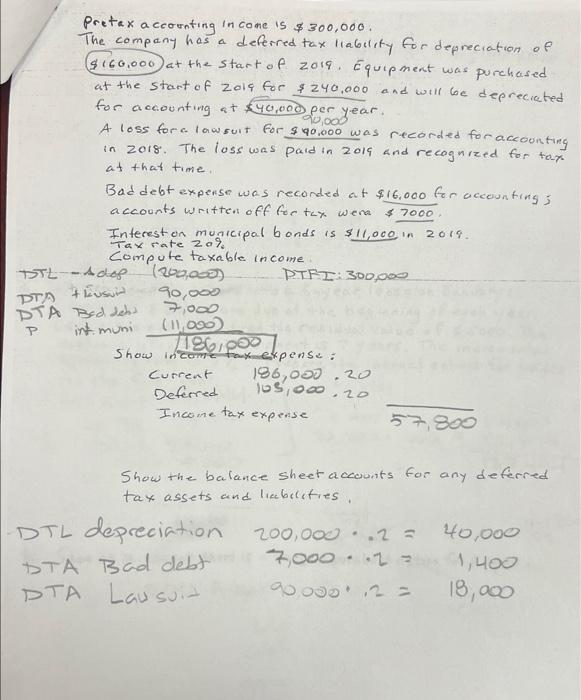 Pretax accounting income is $300,000.
The company has a deferred tax liability for depreciation of
$160,000 at the start of 2019. Equipment was purchased
at the start of 2019 for $240,000 and will be depreciated
for accounting at $40,000 per year.
90,000
A loss for a lawsuit for $90,000 was recorded for accounting
in 2018. The loss was paid in 2019 and recognized for tax
at that time.
Bad debt expense was recorded at $16,000 for accounting;
accounts written off for tax were $7000.
Interest on municipal bonds is $11,000 in 2019.
Tax rate 20%
Compute taxable income.
- Δ dep (200,000) PTFI: 300,000
DTA + Lawsuit 90,000
DTA Bad debt 7,000
P int. muni (11,000)
186,000
Show income tax expense:
Current 186,000 . 20
Deferred 103,000 . 20
Income tax expense 57,800
Show the balance sheet accounts for any deferred
tax assets and liabilities.
DTL depreciation 200,000 · .2 = 40,000
DTA Bad debt 7,000 · .2 = 1,400
DTA Lawsuit 90,000 · .2 = 18,000